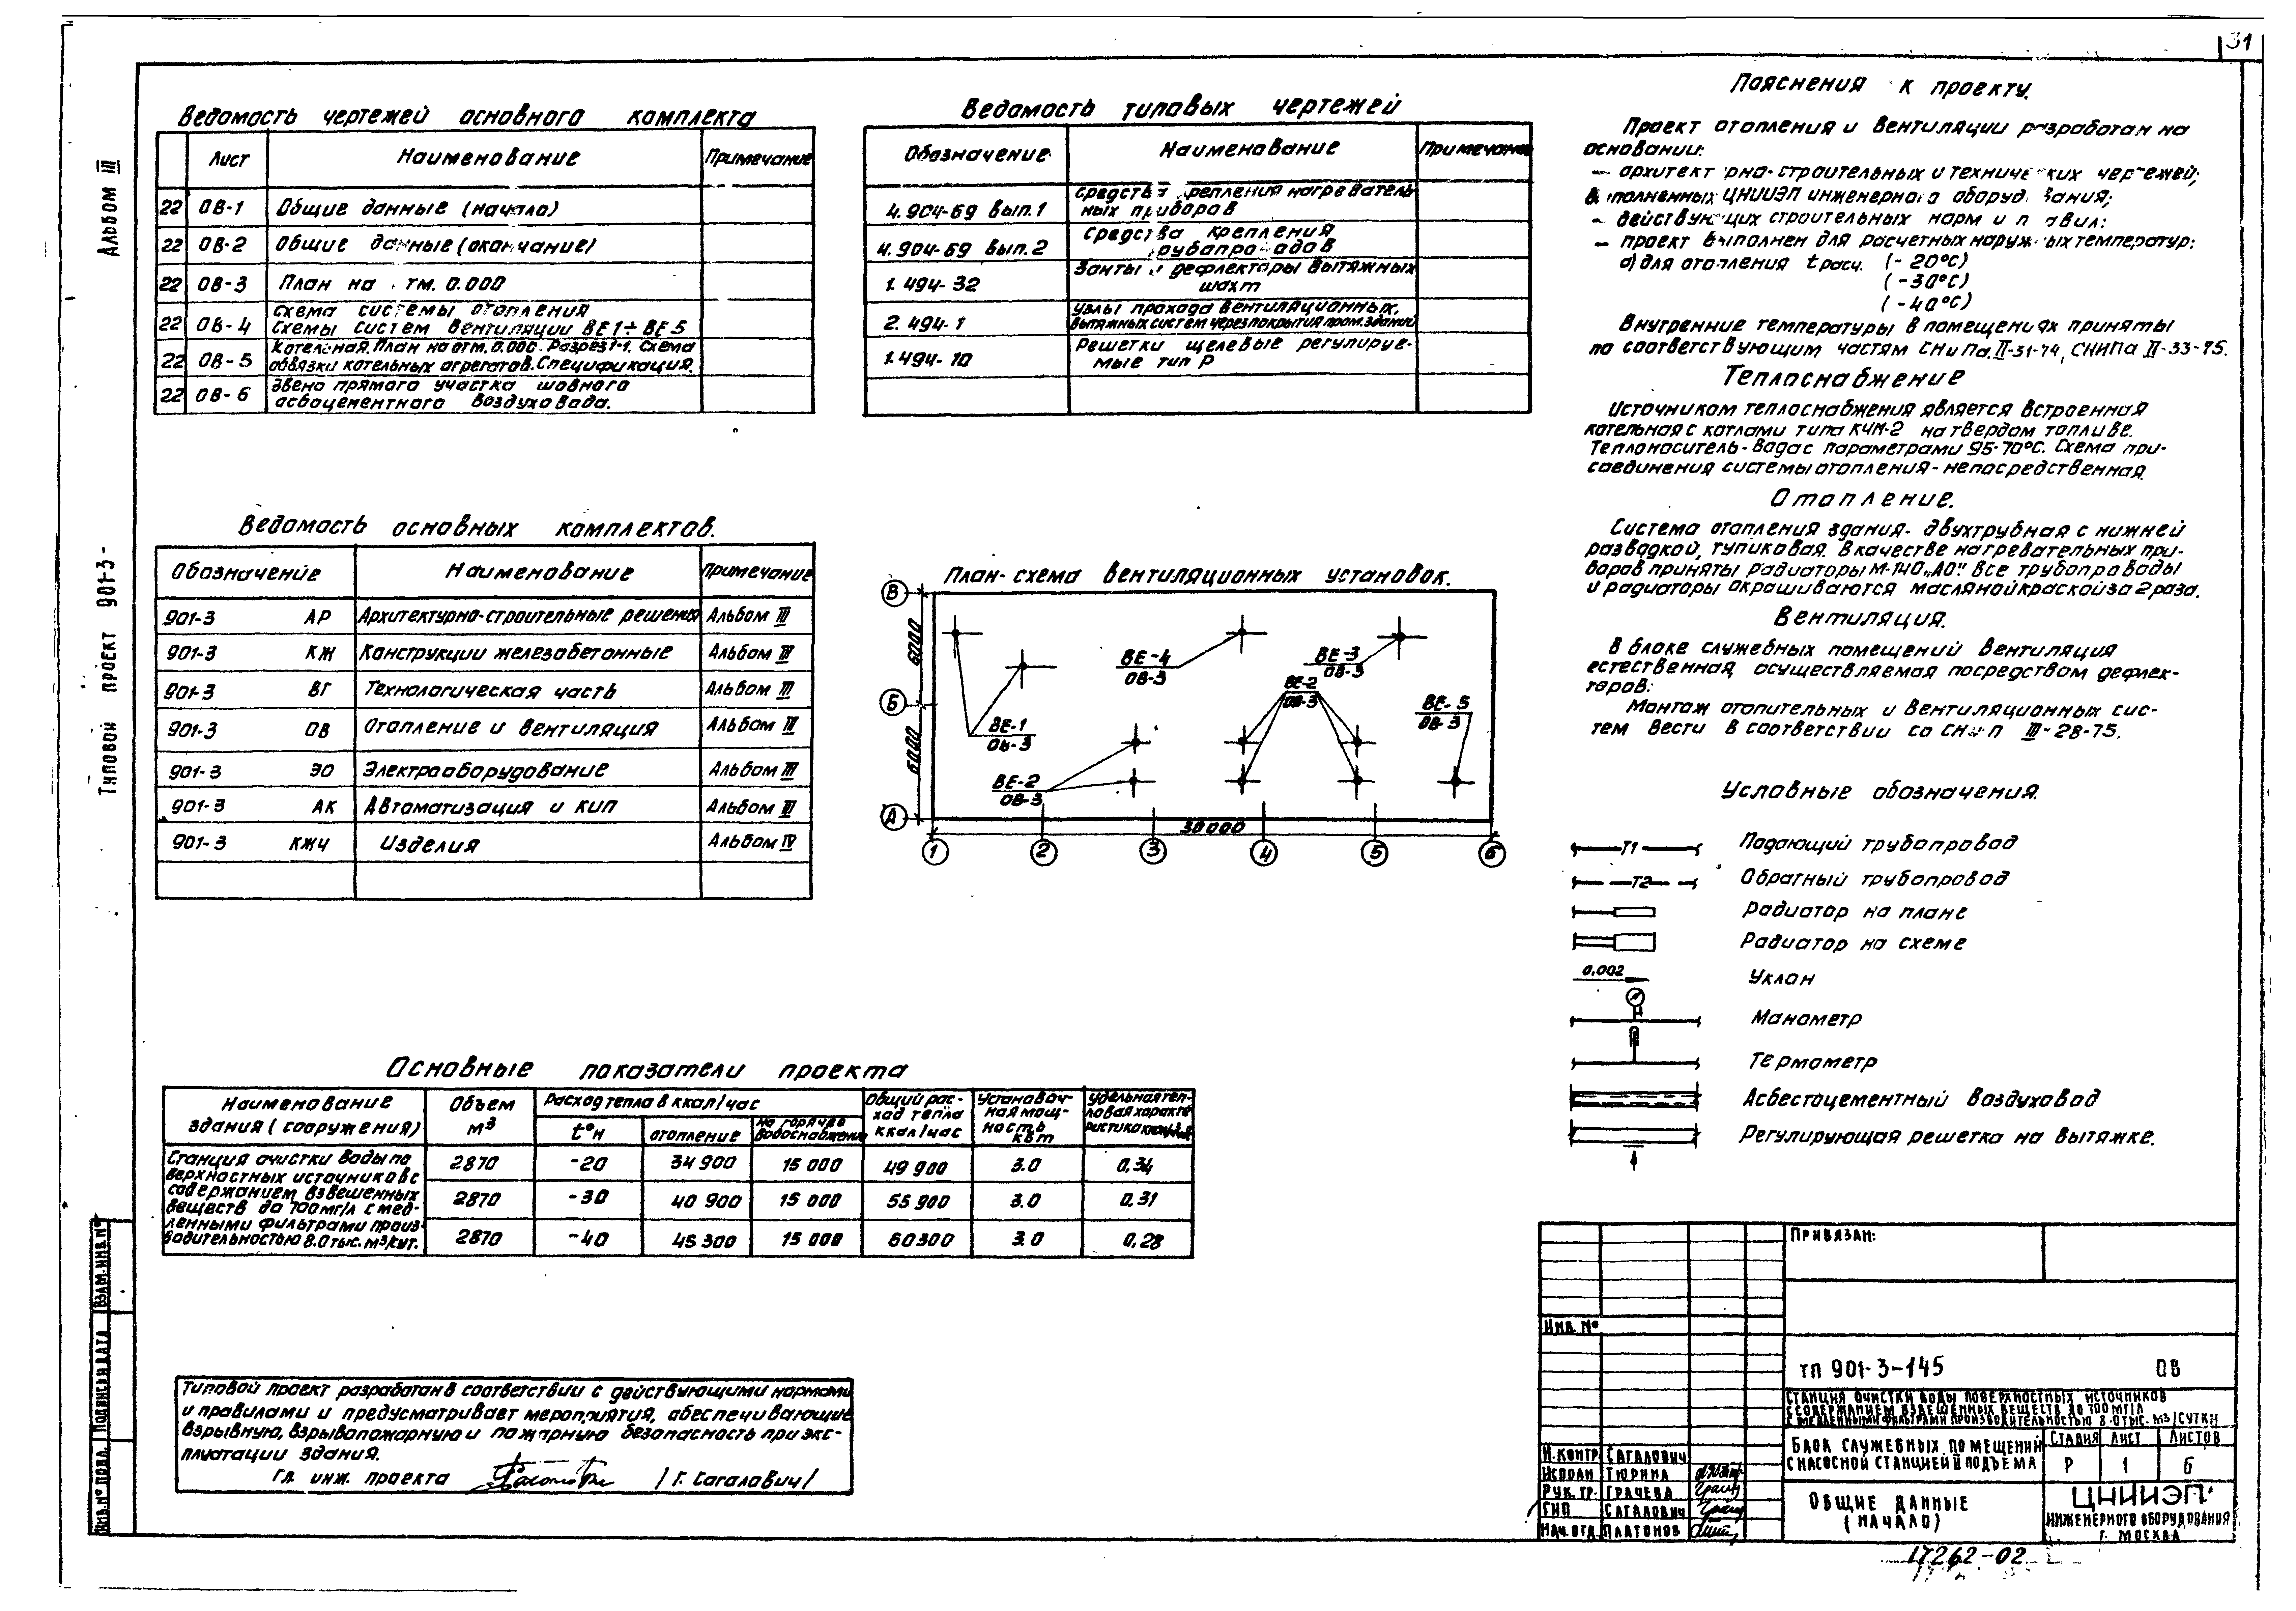 31
Альбом III
Типовой проект 901-3-
Ведомость чертежей основного комплекта
Лист Наименование Примечание
22 ОВ-1 Общие данные (начало)
22 ОВ-2 Общие данные (окончание)
22 ОВ-3 План на отм. 0.000
22 ОВ-4 Схема системы отопления
Схемы систем вентиляции ВЕ1÷ВЕ5
22 ОВ-5 Котельная. План на отм. 0.000. Разрез 1-1. Схема
обвязки котельных агрегатов. Спецификация.
22 ОВ-6 Звено прямого участка шовного
асбоцементного воздуховода.
Ведомость типовых чертежей
Обозначение Наименование Примечание
4.904-69 вып.1 Средства крепления нагреватель
ных приборов
4.904-69 вып.2 Средства крепления
трубопроводов
1.494-32 Зонты и дефлекторы вытяжных
шахт
2.494-1 Узлы прохода вентиляционных,
вытяжных систем через покрытия пром. зданий
1.494-10 Решетки щелевые регулируе-
мые тип Р
Ведомость основных комплектов.
Обозначение Наименование Примечание
901-3 АР Архитектурно-строительные решения Альбом III
901-3 КЖ Конструкции железобетонные Альбом III
901-3 ВГ Технологическая часть Альбом III
901-3 ОВ Отопление и вентиляция Альбом III
901-3 ЭО Электрооборудование Альбом III
901-3 АК Автоматизация и КИП Альбом
901-3 КЖИ Изделия Альбом IV
План-схема вентиляционных установок.
В
Б
А
6000
6000
ВЕ-4
ОВ-3
ВЕ-3
ОВ-3
ВЕ-2
ОВ-3
ВЕ-5
ОВ-3
ВЕ-1
ОВ-3
ВЕ-2
ОВ-3
30000
1 2 3 4 5 6
Основные показатели проекта
Наименование
здания (сооружения)
Объем
м³
Расход тепла в ккал/час
t°н отопление на горячее
водоснабжение
Общий рас-
ход тепла
ккал/час
Установоч-
ная мощ-
ность
квт
Удельная теп-
ловая характе
ристика
Станция очистки воды по
верхностных источников с
содержанием взвешенных
веществ до 700мг/л с мед-
ленными фильтрами произ-
водительностью 8.0 тыс. м³/сут.
2870 -20 34 900 15 000 49 900 3.0 0,34
2870 -30 40 900 15 000 55 900 3.0 0,31
2870 -40 45 300 15 000 60300 3.0 0,28
Типовой проект разработан в соответствии с действующими нормами
и правилами и предусматривает мероприятия, обеспечивающие
взрывную, взрывопожарную и пожарную безопасность при экс-
плуатации здания.
Гл. инж. проекта /Г. Сагалович/
Пояснения к проекту.
Проект отопления и вентиляции разработан на
основании:
- архитектурно-строительных и технических чертежей,
выполненных ЦНИИЭП инженерного оборудования;
- действующих строительных норм и правил:
- проект выполнен для расчетных наружных температур:
а) для отопления tрасч. (-20°С)
(-30°С)
(-40°С)
Внутренние температуры в помещениях приняты
по соответствующим частям СНиПа, II-31-74, СНИПа II-33-75.
Теплоснабжение
Источником теплоснабжения является встроенная
котельная с котлами типа КЧМ-2 на твердом топливе.
Теплоноситель-вода с параметрами 95-70°С. Схема при-
соединения системы отопления-непосредственная
Отопление.
Система отопления здания- двухтрубная с нижней
разводкой, тупиковая. В качестве нагревательных при-
боров приняты радиаторы М-140„АО". Все трубопроводы
и радиаторы окрашиваются масляной краской за 2 раза.
Вентиляция.
В блоке служебных помещений вентиляция
естественная, осуществляемая посредством дефлек-
торов:
Монтаж отопительных и вентиляционных сис-
тем вести в соответствии со СНиП III-28-75.
Условные обозначения.
Т1 Подающий трубопровод
Т2 Обратный трубопровод
Радиатор на плане
Радиатор на схеме
0.002 Уклон
Манометр
Термометр
Асбестоцементный воздуховод
Регулирующая решетка на вытяжке.
Привязан:
Инв. №
ТП 901-3-145 ОВ
Станция очистки воды поверхностных источников
с содержанием взвешенных веществ до 700 мг/л
с медленными фильтрами производительностью 8.0 тыс. м3/сутки
Блок служебных помещений
с насосной станцией II подъема
Стадия Лист Листов
Р 1 6
Н.контр. Сагалович
Исполн Тюрина
Рук. гр. Грачева
ГИП Сагалович
Нач.отд. Платонов
Общие данные
(начало)
ЦНИИЭП
инженерного оборудования
г. Москва
17262-02
Взам. инв. №
Подпись и дата
Инв. № подл.